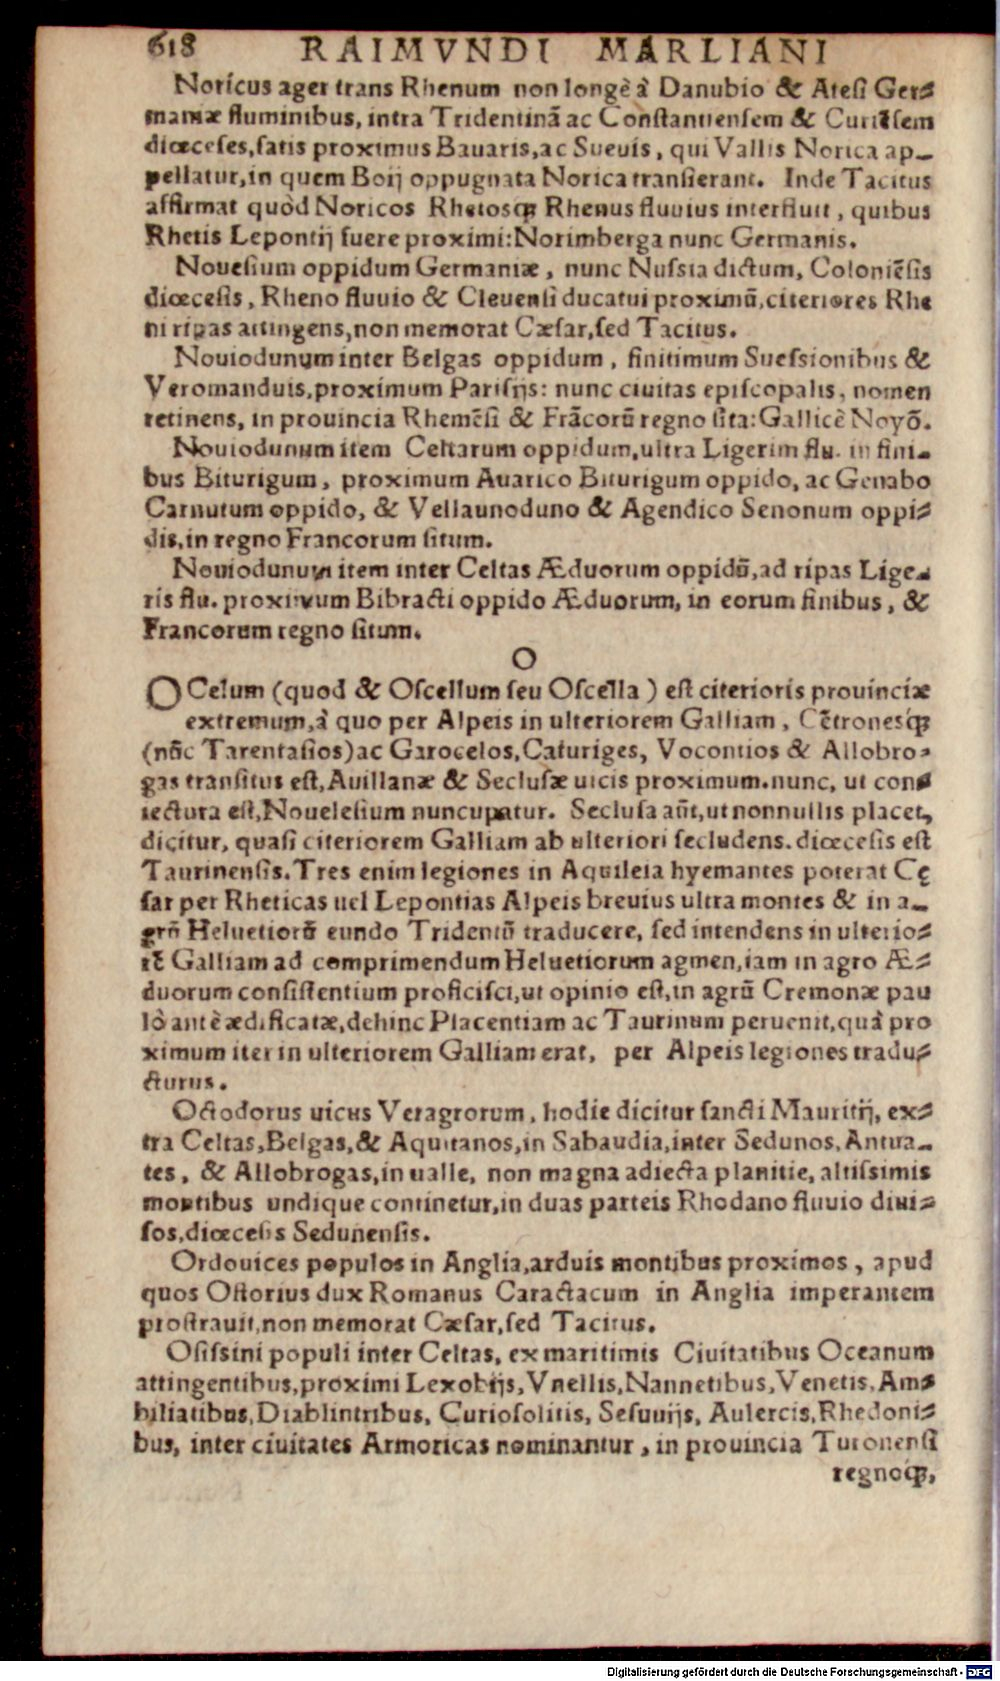 618 RAIMVNDI MARLIANI
Noricus ager trans Rhenum non longè à Danubio & Atesi Ger⸗
maniæ fluminibus, intra Tridentinā ac Constantiensem & Curiēsem
diœceses, satis proximus Bavaris, ac Suevis, qui Vallis Norica ap-
pellatur, in quem Boij oppugnata Norica transierant. Inde Tacitus
affirmat quòd Noricos Rhetosq́; Rhenus fluvius interfluit, quibus
Rhetis Lepontij fuere proximi: Norimberga nunc Germanis.
Novesium oppidum Germaniæ, nunc Nussia dictum, Coloniēsis
diœcesis, Rheno fluvio & Clevensi ducatui proximū, citeriores Rhe
ni ripas attingens, non memorat Cæsar, sed Tacitus.
Noviodunum inter Belgas oppidum, finitimum Suessionibus &
Veromanduis, proximum Parisijs: nunc civitas episcopalis, nomen
retinens, in provincia Rhemēsi & Frācorū regno sita: Gallicè Noyō.
Noviodunum item Celtarum oppidum, ultra Ligerim flu. in fini-
bus Biturigum, proximum Avarico Biturigum oppido, ac Genabo
Carnutum oppido, & Vellaunoduno & Agendico Senonum oppi⸗
dis, in regno Francorum situm.
Noviodunum item inter Celtas Æduorum oppidū, ad ripas Lige-
ris flu. proximum Bibracti oppido Æduorum, in eorum finibus, &
Francorum regno situm.
O
OCelum (quod & Oscellum seu Oscella) est citerioris provinciæ
extremum, à quo per Alpeis in ulteriorem Galliam, Cētronesq́;
(nūc Tarentasios) ac Garocelos, Caturiges, Vocontios & Allobro⸗
gas transitus est, Avillanæ & Seclusæ vicis proximum. nunc, ut con⸗
iectura est, Novelesium nuncupatur. Seclusa aūt, ut nonnullis placet,
dicitur, quasi citeriorem Galliam ab ulteriori secludens. diœcesis est
Taurinensis. Tres enim legiones in Aquileia hyemantes poterat Cę
sar per Rheticas uel Lepontias Alpeis brevius ultra montes & in a-
grū Helvetiorū eundo Tridentū traducere, sed intendens in ulterio⸗
rē Galliam ad comprimendum Helvetiorum agmen, iam in agro Æ⸗
duorum consistentium proficisci, ut opinio est, in agrū Cremonæ pau
lò antè ædificatæ, dehinc Placentiam ac Taurinum pervenit, quà pro
ximum iter in ulteriorem Galliam erat, per Alpeis legiones tradu⸗
cturus.
Octodorus vicus Veragrorum, hodie dicitur sancti Mauritij, ex⸗
tra Celtas, Belgas, & Aquitanos, in Sabaudia, inter Sedunos, Antua-
tes, & Allobrogas, in ualle, non magna adiecta planitie, altissimis
montibus undique continetur, in duas parteis Rhodano fluvio divi⸗
sos, diœcesis Sedunensis.
Ordovices populos in Anglia, arduis montibus proximos, apud
quos Ostorius dux Romanus Caractacum in Anglia imperantem
prostravit, non memorat Cæsar, sed Tacitus.
Osissini populi inter Celtas, ex maritimis Civitatibus Oceanum
attingentibus, proximi Lexobijs, Vnellis, Nannetibus, Venetis, Am⸗
biliatibus, Diablintribus, Curiosolitis, Sesuvijs, Aulercis, Rhedoni⸗
bus, inter civitates Armoricas nominantur, in provincia Turonensi
regnoq́;,
Digitalisierung gefördert durch die Deutsche Forschungsgemeinschaft - DFG